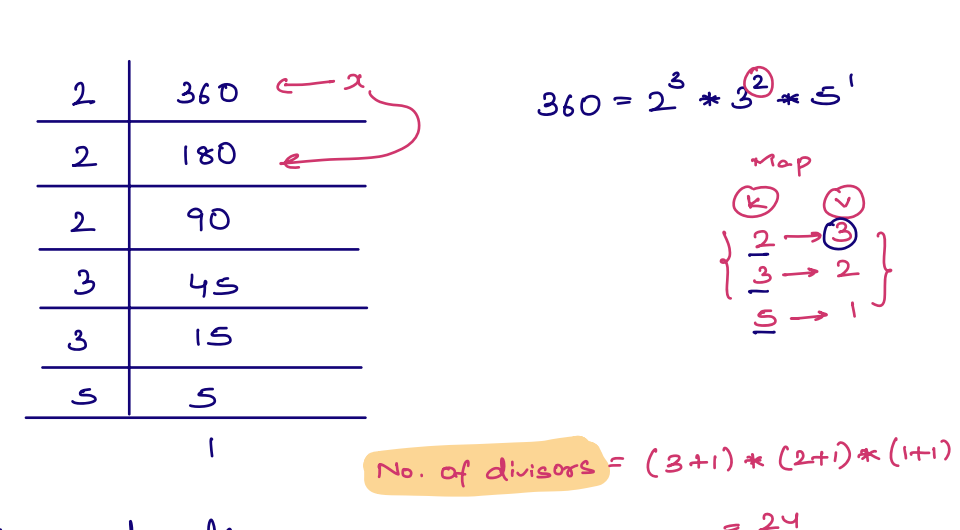 2 360 ← x
2 180
2 90
3 45
3 15
5 5
1
360 = 2^3 * 3^2 * 5^1
Map
k v
{ 2 → 3 }
3 → 2
5 → 1
No. of divisors = (3+1) * (2+1) * (1+1)
= 24